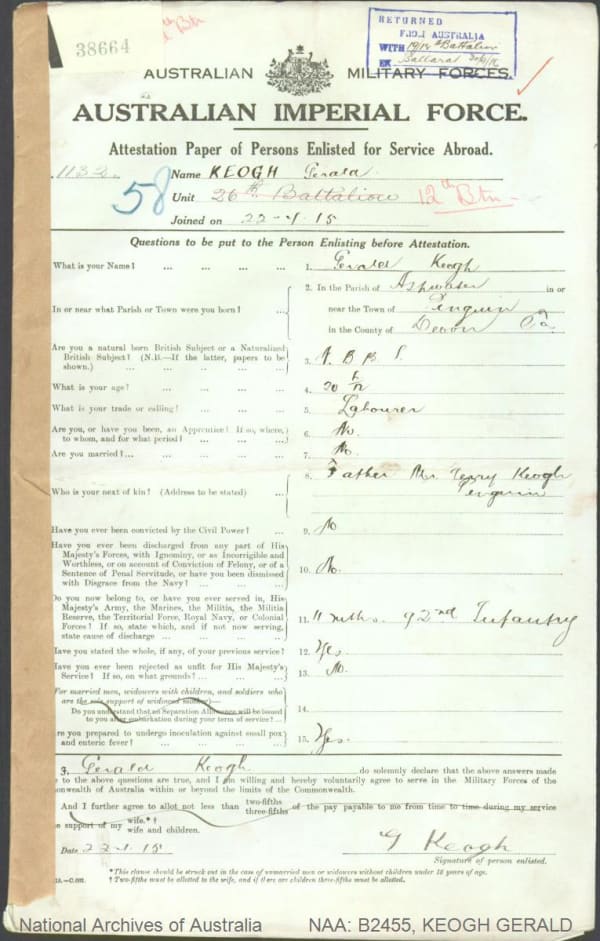 38664
RETURNED
FROM AUSTRALIA
WITH 19/12th Battalion
EX Ballarat
12th Btn
AUSTRALIAN MILITARY FORCES.
AUSTRALIAN IMPERIAL FORCE.
Attestation Paper of Persons Enlisted for Service Abroad.
1132. Name KEOGH Gerald
58 Unit 26th Battalion 12th Btn
Joined on 22-1-15
Questions to be put to the Person Enlisting before Attestation.
What is your Name? ... ... ... 1. Gerald Keogh
In or near what Parish or Town were you born? ... 2. In the Parish of Ashwater in or
near the Town of Penguin
in the County of Devon Tas
Are you a natural born British Subject or a Naturalized
British Subject? (N.B.—If the latter, papers to be
shown.) ... ... ... 3. N. B B S.
What is your age? ... ... ... 4. 20
What is your trade or calling? ... ... 5. Labourer
Are you, or have you been, an Apprentice? If so, where,
to whom, and for what period? ... ... 6. No.
Are you married?... ... ... ... 7. No.
Who is your next of kin? (Address to be stated) ... 8. Father Mr. Terry Keogh
Penguin
Have you ever been convicted by the Civil Power? ... 9. No
Have you ever been discharged from any part of His
Majesty's Forces, with Ignominy, or as Incorrigible and
Worthless, or on account of Conviction of Felony, or of a
Sentence of Penal Servitude, or have you been dismissed
with Disgrace from the Navy? ... ... 10. No.
Do you now belong to, or have you ever served in, His
Majesty's Army, the Marines, the Militia, the Militia
Reserve, the Territorial Force, Royal Navy, or Colonial
Forces? If so, state which, and if not now serving,
state cause of discharge ... ... 11. 11 mths. 92nd Infantry
Have you stated the whole, if any, of your previous service? 12. Yes.
Have you ever been rejected as unfit for His Majesty's
Service? If so, on what grounds? ... ... 13. No.
For married men, widowers with children, and soldiers who
are the sole support of widowed mother)—
Do you understand that no Separation Allowance will be issued
to you after embarkation during your term of service? ... 14.
Are you prepared to undergo inoculation against small pox
and enteric fever? ... ... ... 15. Yes.
I, Gerald Keogh do solemnly declare that the above answers made
to the above questions are true, and I am willing and hereby voluntarily agree to serve in the Military Forces of the
monwealth of Australia within or beyond the limits of the Commonwealth.
And I further agree to allot not less than two-fifths three-fifths of the pay payable to me from time to time during my service
e support of my wife.*†
wife and children.
Date 22-1-15 G Keogh
Signature of person enlisted.
* This clause should be struck out in the case of unmarried men or widowers without children under 18 years of age.
† Two-fifths must be allotted to the wife, and if there are children three-fifths must be allotted.
National Archives of Australia NAA: B2455, KEOGH GERALD